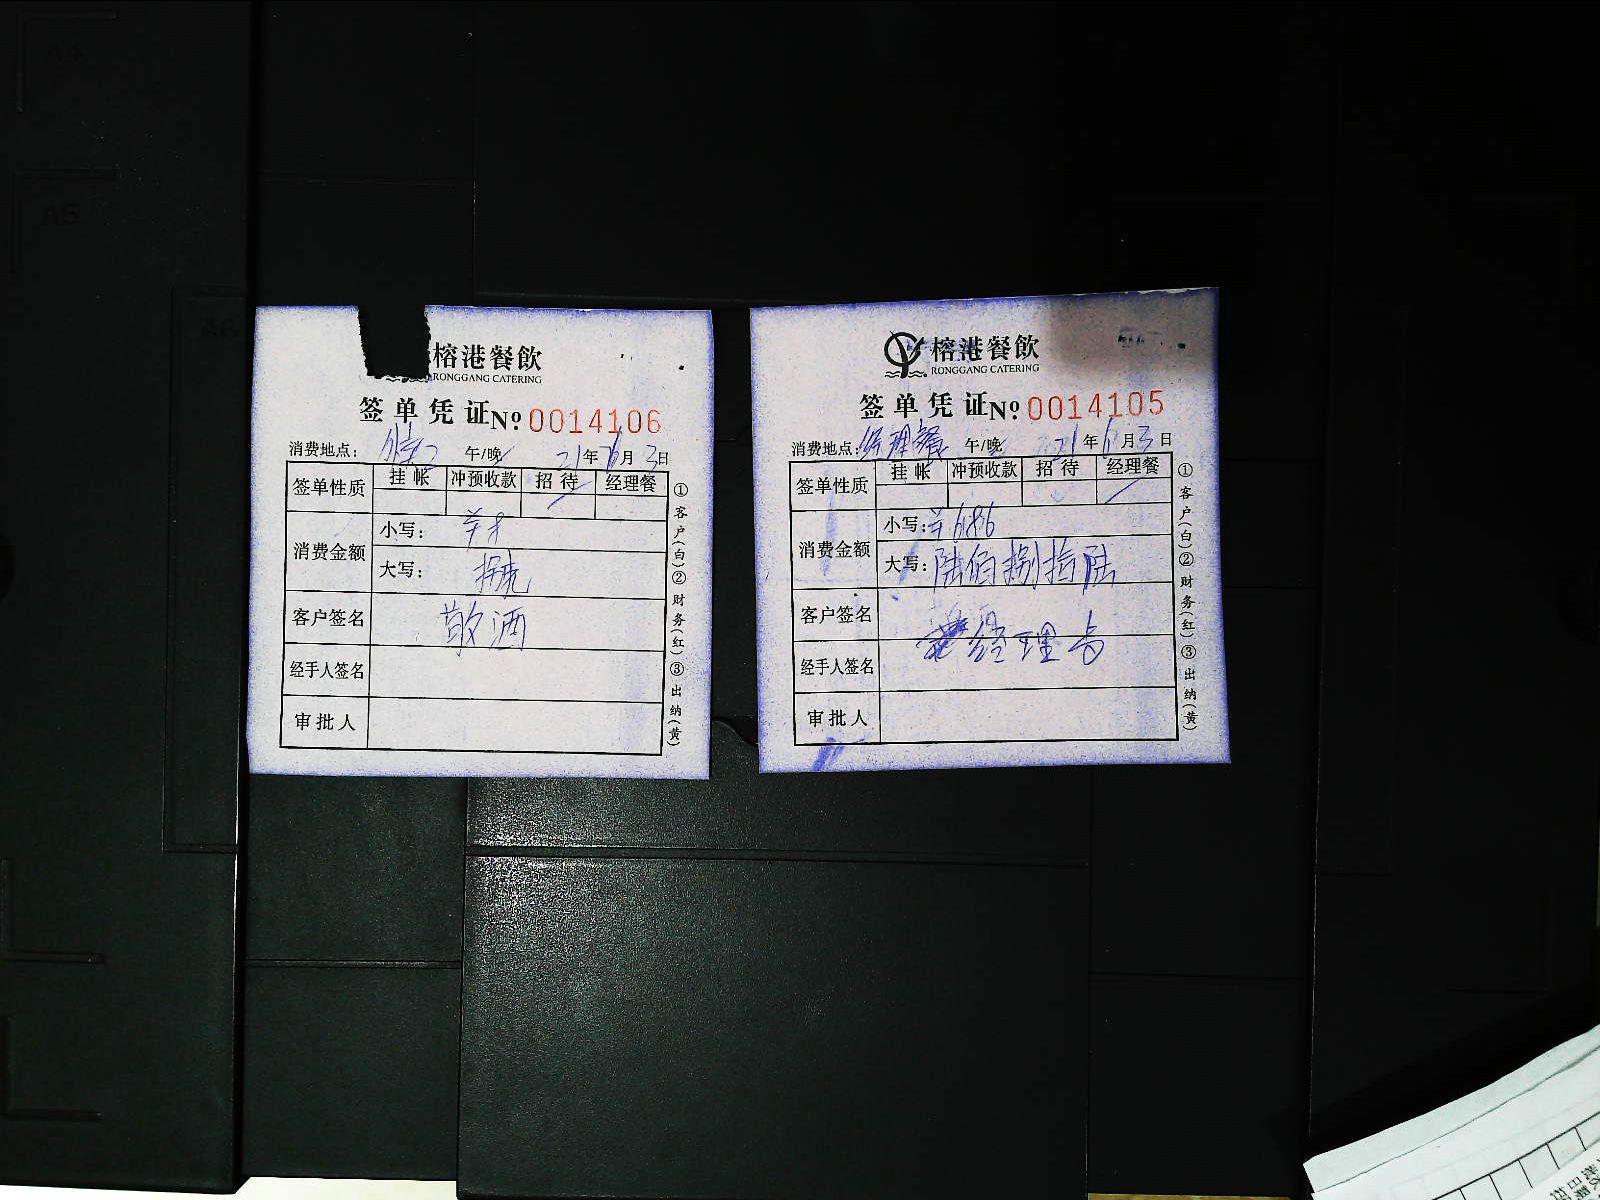 榕港餐飲
RONGGANG CATERING
签单凭证 No 0014106
消费地点： 午/晚 21年6月3日
签单性质 挂帐 冲预收款 招待 经理餐
消费金额 小写：
大写：
客户签名 敬酒
经手人签名
审批人
①客户(白)②财务(红)③出纳(黄)
榕港餐飲
RONGGANG CATERING
签单凭证 No 0014105
消费地点：经理餐 午/晚 21年6月3日
签单性质 挂帐 冲预收款 招待 经理餐
消费金额 小写：¥686
大写：陆佰捌拾陆
客户签名
经理
经手人签名
审批人
①客户(白)②财务(红)③出纳(黄)
A5
A6